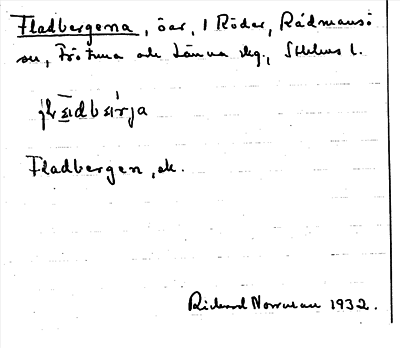 Fladbergena, öar, I Röder, Rådmansö
sn, Frötuna och Länna skg., Sthlms l.
Fladbergen, ek.
Rickard Norrman 1932.